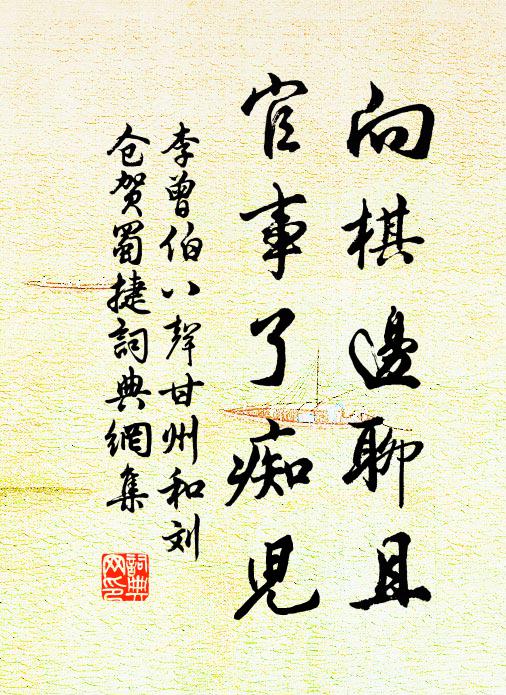 向棋邊聊且
官事了痴児
李曾伯八聲甘州和刘
仓贺蜀捷詞典網集
詞典
网印